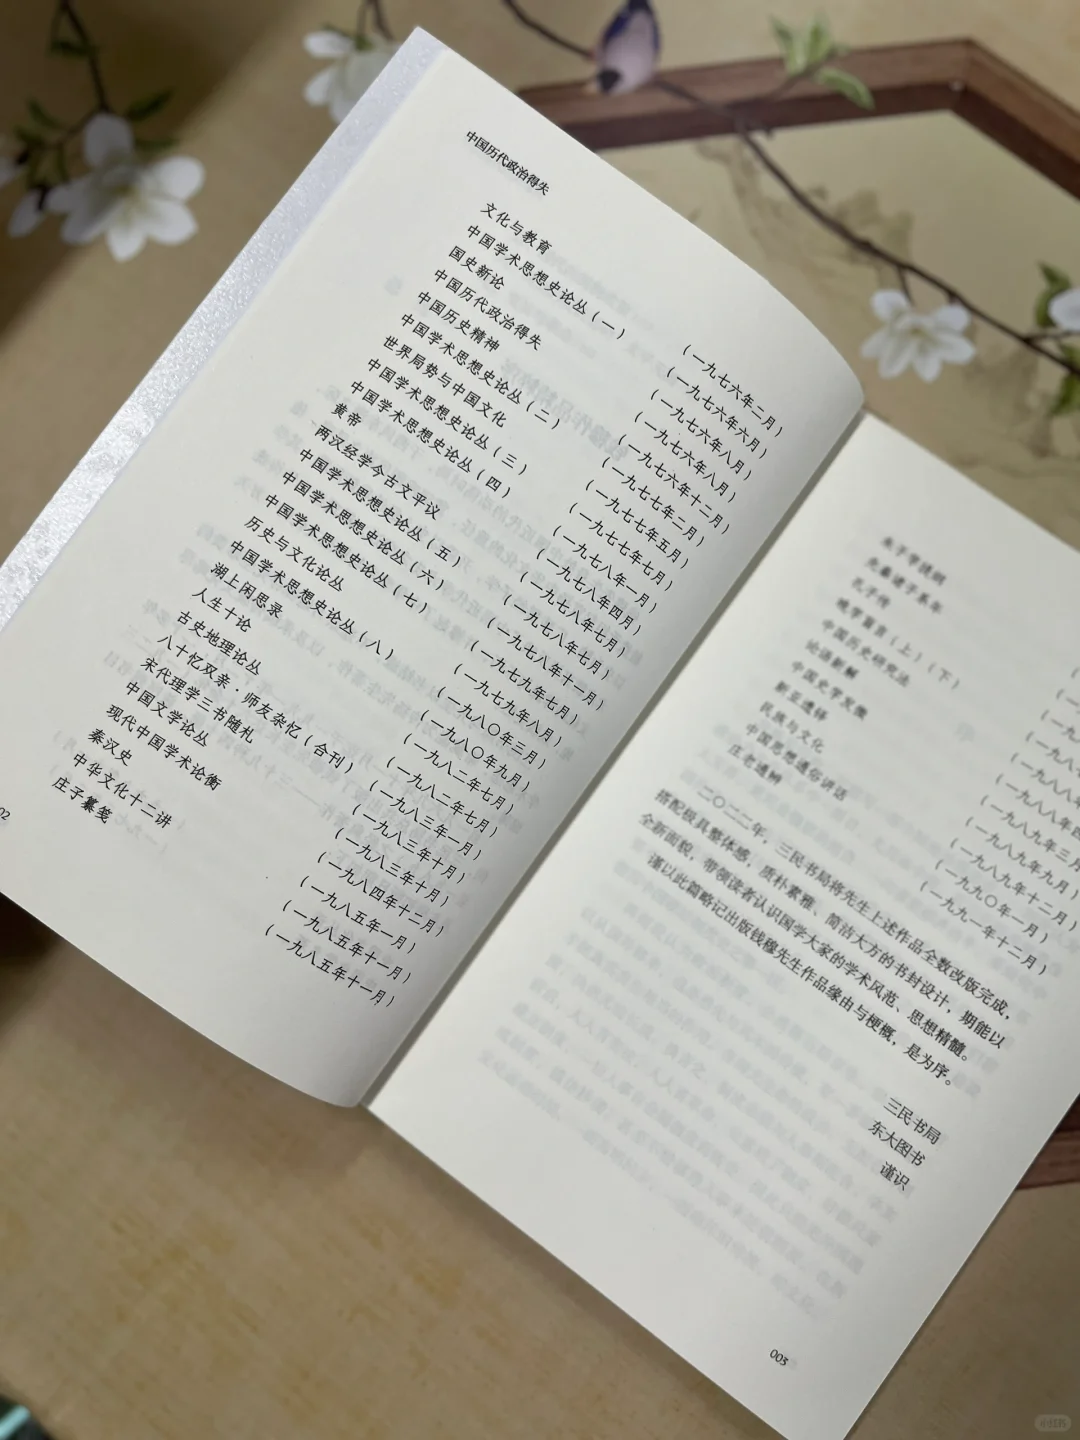 中国历代政治得失
文化与教育（一九七六年二月）
中国学术思想史论丛（一）（一九七六年六月）
国史新论（一九七六年八月）
中国历代政治得失（一九七六年八月）
中国历史精神（一九七六年十二月）
中国学术思想史论丛（二）（一九七七年二月）
世界局势与中国文化（一九七七年五月）
中国学术思想史论丛（三）（一九七七年七月）
中国学术思想史论丛（四）（一九七八年一月）
黄帝（一九七八年四月）
两汉经学今古文平议（一九七八年七月）
中国学术思想史论丛（五）（一九七八年七月）
中国学术思想史论丛（六）（一九七八年十一月）
中国学术思想史论丛（七）（一九七九年七月）
历史与文化论丛（一九七九年八月）
中国学术思想史论丛（八）（一九八〇年三月）
湖上闲思录（一九八〇年九月）
人生十论（一九八二年七月）
古史地理论丛（一九八二年七月）
八十忆双亲·师友杂忆（合刊）（一九八三年一月）
宋代理学三书随札（一九八三年十月）
中国文学论丛（一九八三年十月）
现代中国学术论衡（一九八四年十二月）
秦汉史（一九八五年一月）
中华文化十二讲（一九八五年十一月）
庄子纂笺（一九八五年十一月）
02
朱子学提纲
先秦诸子系年（一
孔子传（一九
晚学盲言（上）（下）（一九八
中国历史研究法（一九八八年
论语新解（一九八八年四
中国史学发微（一九八九年三月
新亚遗铎（一九八九年九月
民族与文化（一九八九年十二月）
中国思想通俗讲话（一九九〇年一月）
庄老通辨（一九九一年十二月）
二〇二二年，三民书局将先生上述作品全数改版完成，
搭配极具整体感，质朴素雅、简洁大方的书封设计，期能以
全新面貌，带领读者认识国学大家的学术风范、思想精髓。
谨以此篇略记出版钱穆先生作品缘由与梗概，是为序。
三民书局
东大图书
谨识
003